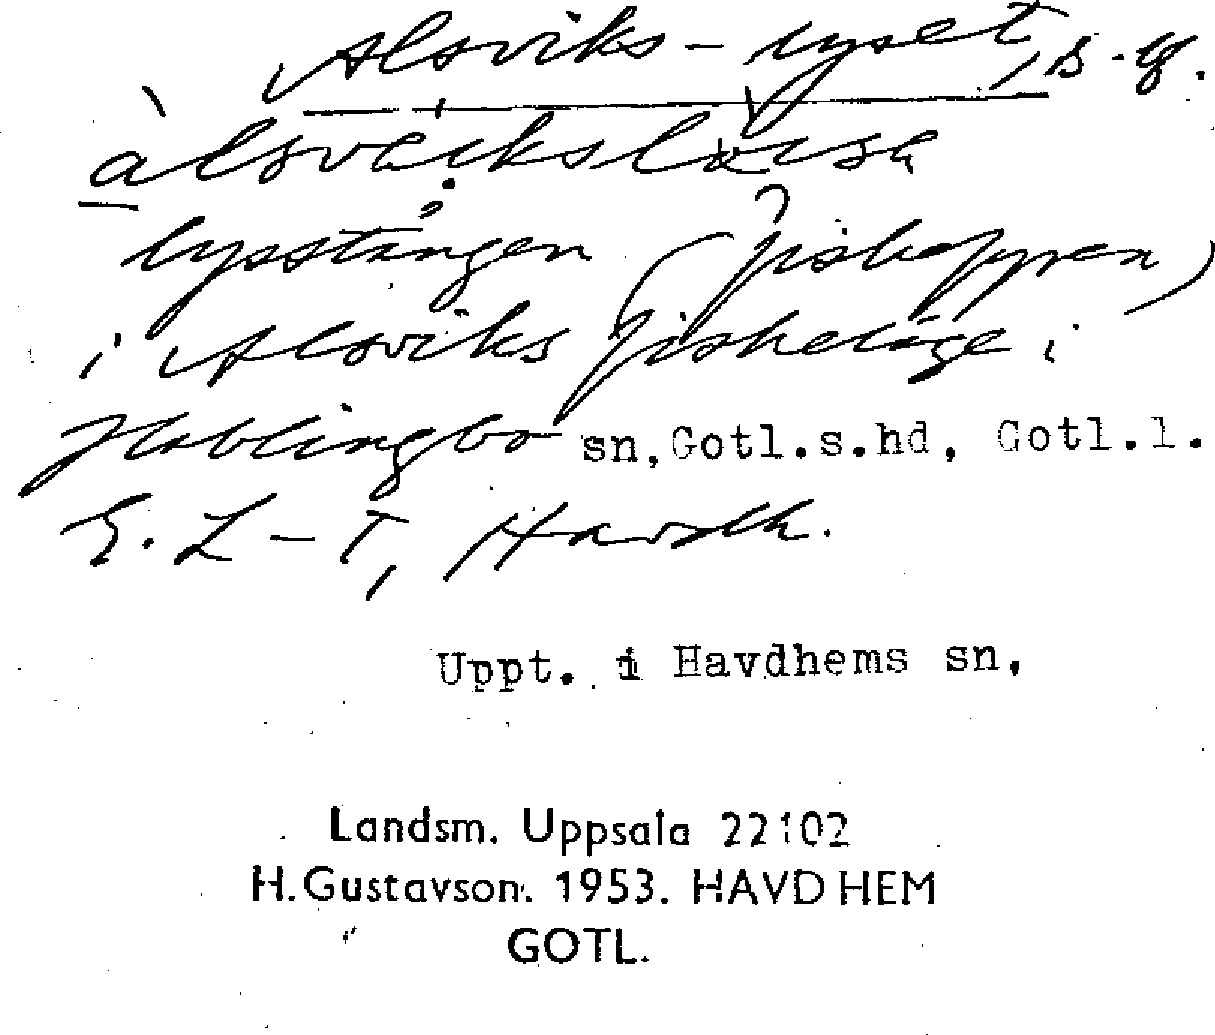 Alsviks-lyset, B-G.
àlsvàiksläisä
lysstången (fiskefyren)
i Alsviks fiskeläge i
Hablingbo sn, Gotl.s.hd, Gotl.l.
E. L-T, Havdh.
Uppt. i Havdhems sn,
Landsm. Uppsala 22102
H.Gustavson. 1953. HAVDHEM
GOTL.